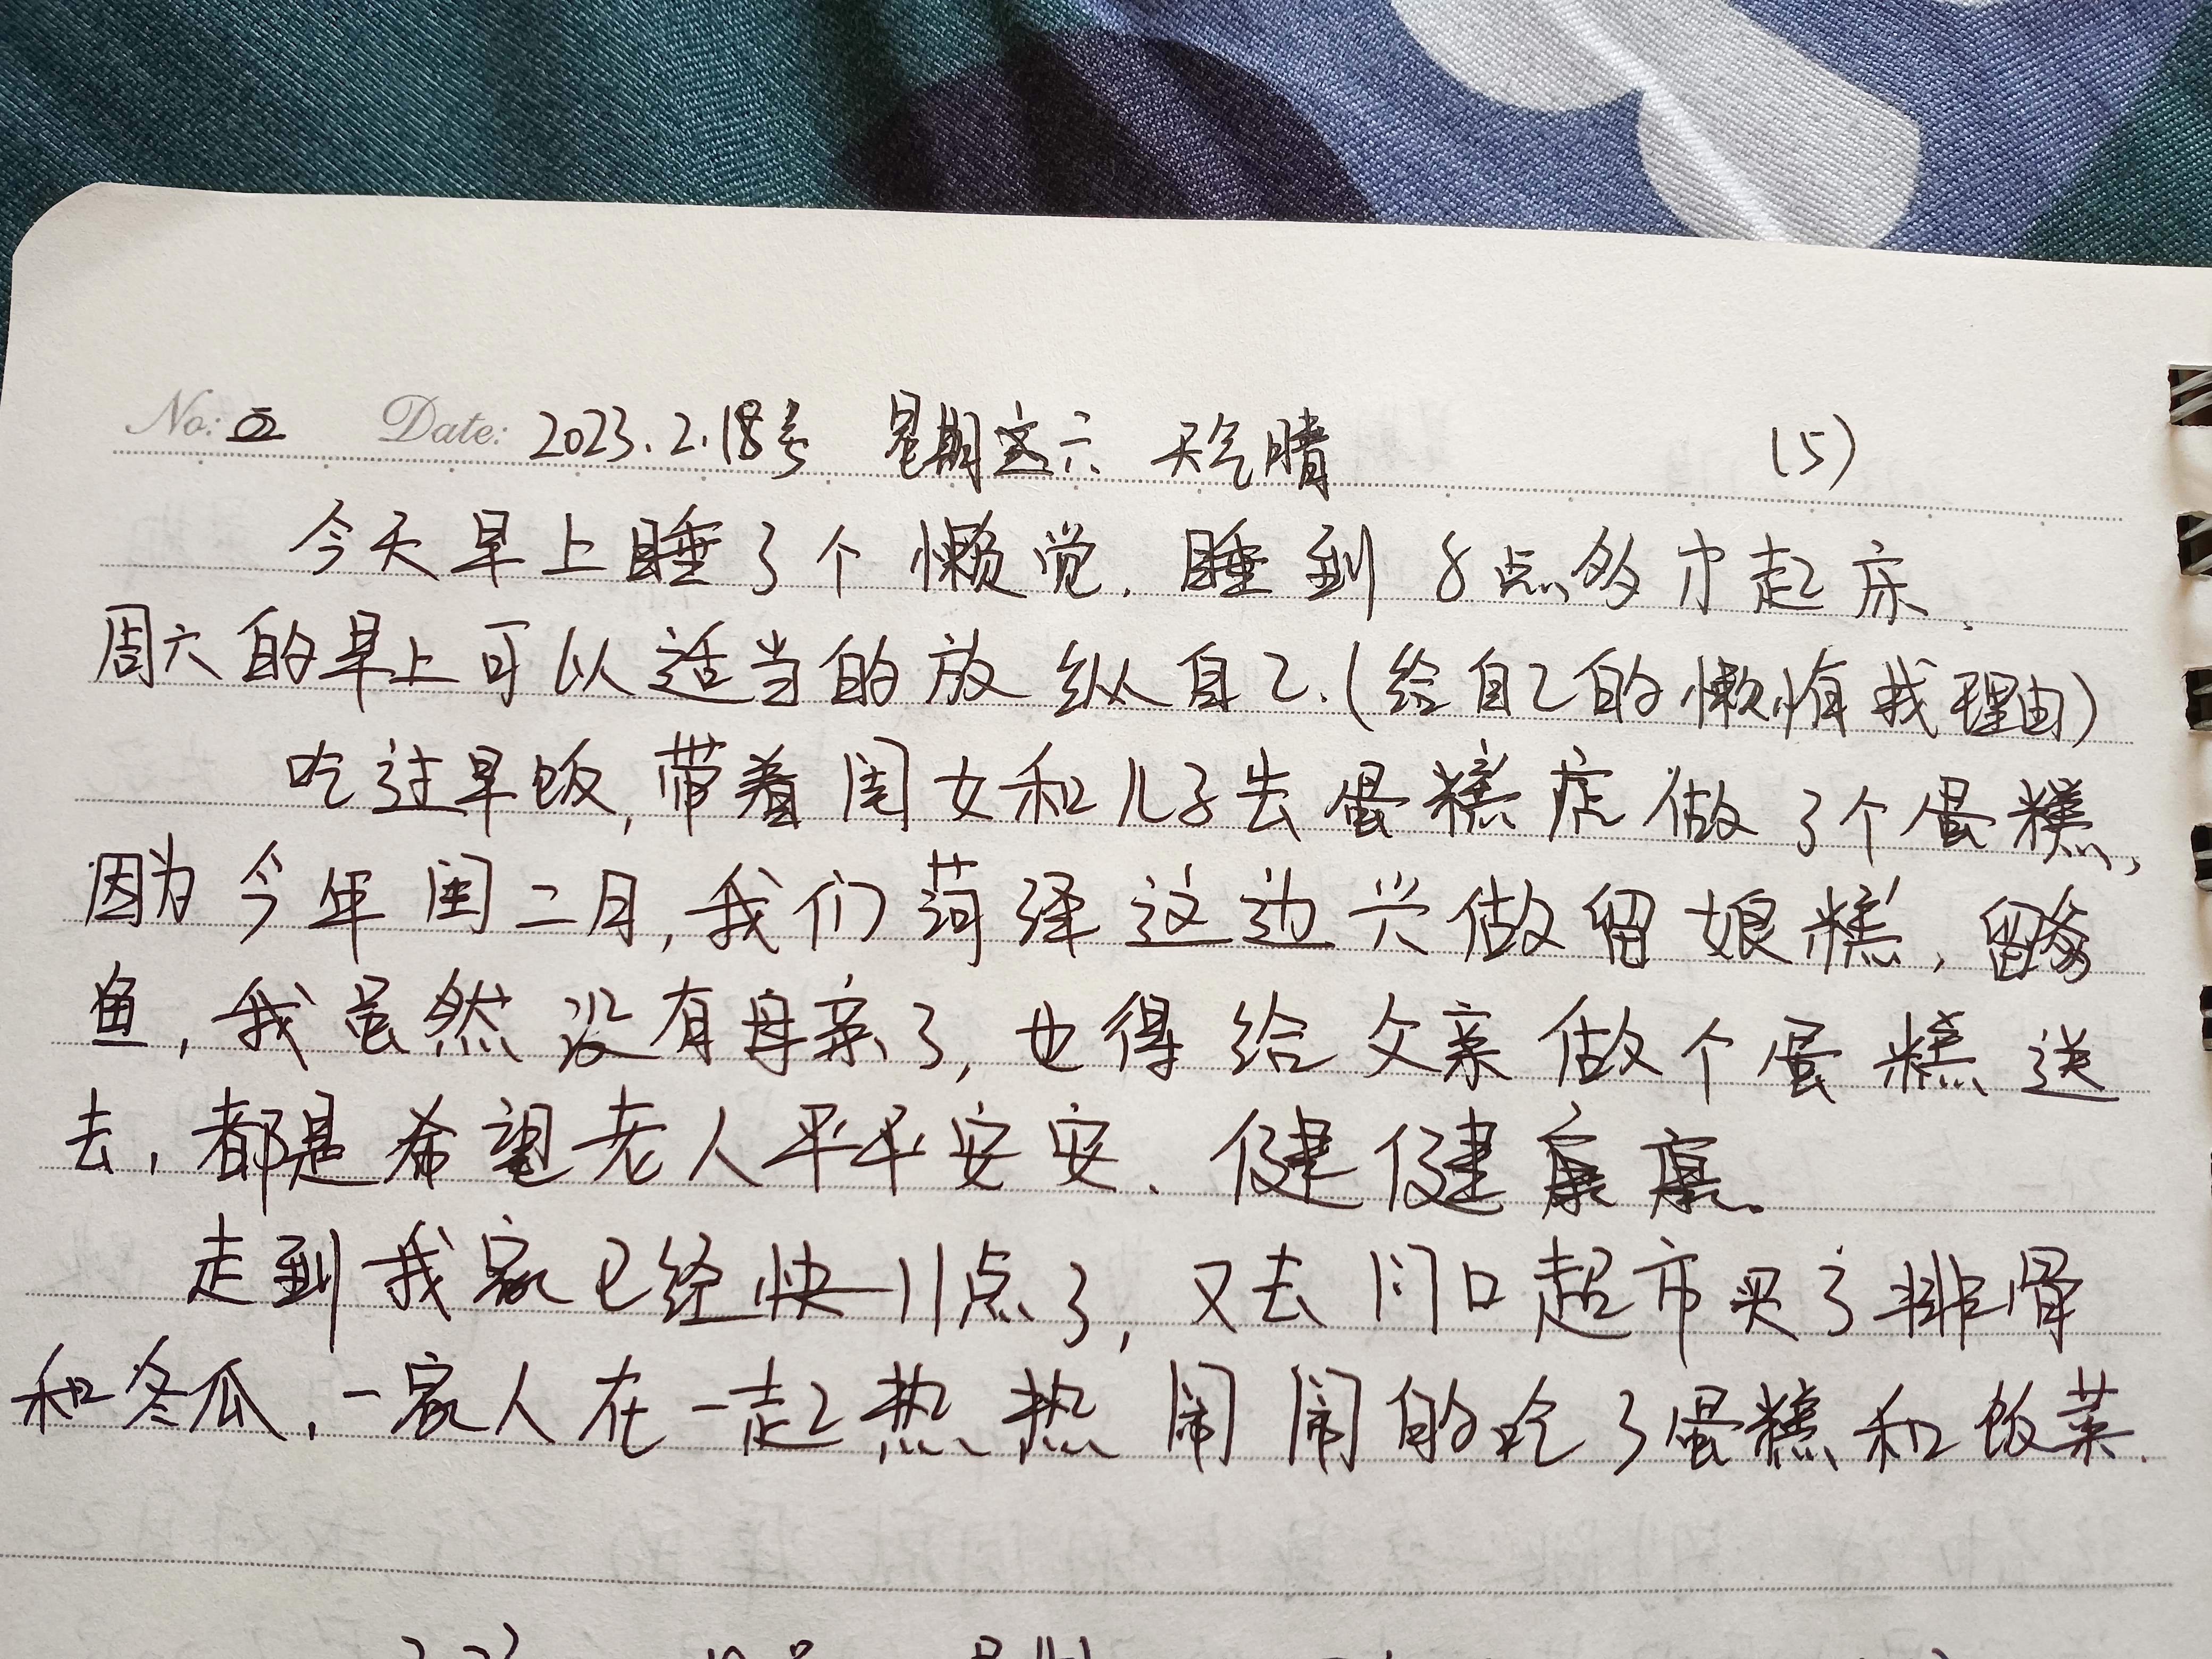 No: 五 Date: 2023.2.18号 星期六 天气晴 (5)
今天早上睡了个懒觉.睡到8点多才起床.
周六的早上可以适当的放纵自己.(给自己的懒惰找理由)
吃过早饭,带着闺女和儿子去蛋糕店做了个蛋糕,
因为今年闰二月,我们菏泽这边兴做留娘糕,留爹
鱼,我虽然没有母亲了,也得给父亲做个蛋糕送
去,都是希望老人平平安安、健健康康。
走到我家已经快11点了,又去门口超市买了排骨
和冬瓜,一家人在一起热热闹闹的吃了蛋糕和饭菜.